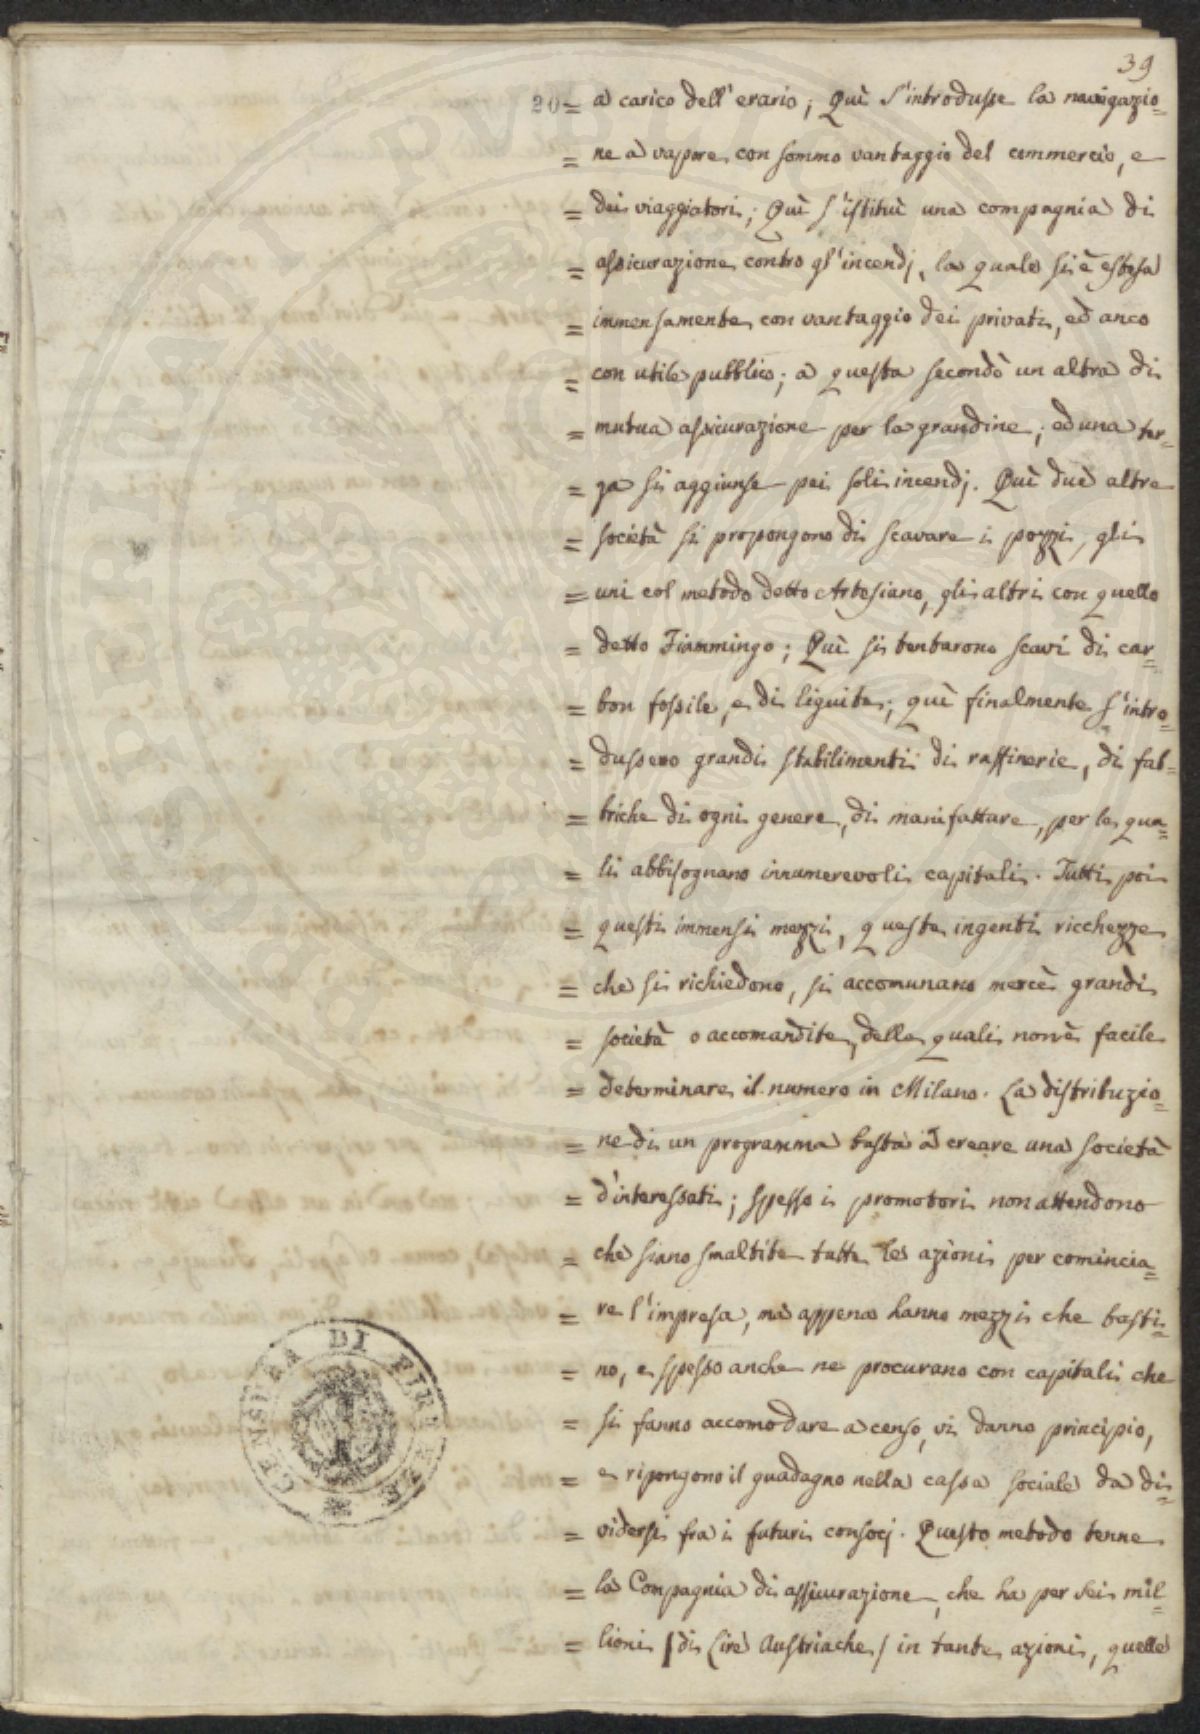 39
20 = a carico dell'erario; Quì s'introdusse la navigazio=
= ne a vapore, con sommo vantaggio del commercio, e
= dei viaggiatori; Quì s'istituì una compagnia di
= assicurazione contro gl'incendj, la quale si è estesa
= immensamente, con vantaggio dei privati, ed anco
= con utile pubblico; a questa secondò un altra di
= mutua assicurazione per la grandine; ed una ter=
= za si aggiunse pei soli incendj. Quì due altre
= società si propongono di scavare i pozzi, gli
= uni col metodo detto Artesiano, gli altri con quello
= detto Fiammingo; Quì si tentarono scavi di car=
= bon fossile, e di liguite; quì finalmente s'intro=
= dussero grandi stabilimenti di raffinerie, di fab=
= briche di ogni genere, di manifatture, per le qua=
= li abbisognano innumerevoli capitali. Tutti poi
= questi immensi mezzi, queste ingenti ricchezze
= che si richiedono, si accomunano mercè grandi
= società o accomandite, delle quali non è facile
= determinare il numero in Milano. La distribuzio=
= ne di un programma basta a creare una società
= d'interessati; spesso i promotori non attendono
= che siano smaltite tutte le azioni per comincia=
= re l'impresa, ma appena hanno mezzi che basti=
= no, e spesso anche ne procurano con capitali che
= si fanno accomodare a censo, vi danno principio,
= e ripongono il guadagno nella cassa sociale da di=
= vidersi fra i futuri consocj. Questo metodo tenne
= la Compagnia di assicurazione, che ha per sei mil=
= lioni / di Lire Austriache / in tante azioni, quelle
CENSURA DI FIRENZE